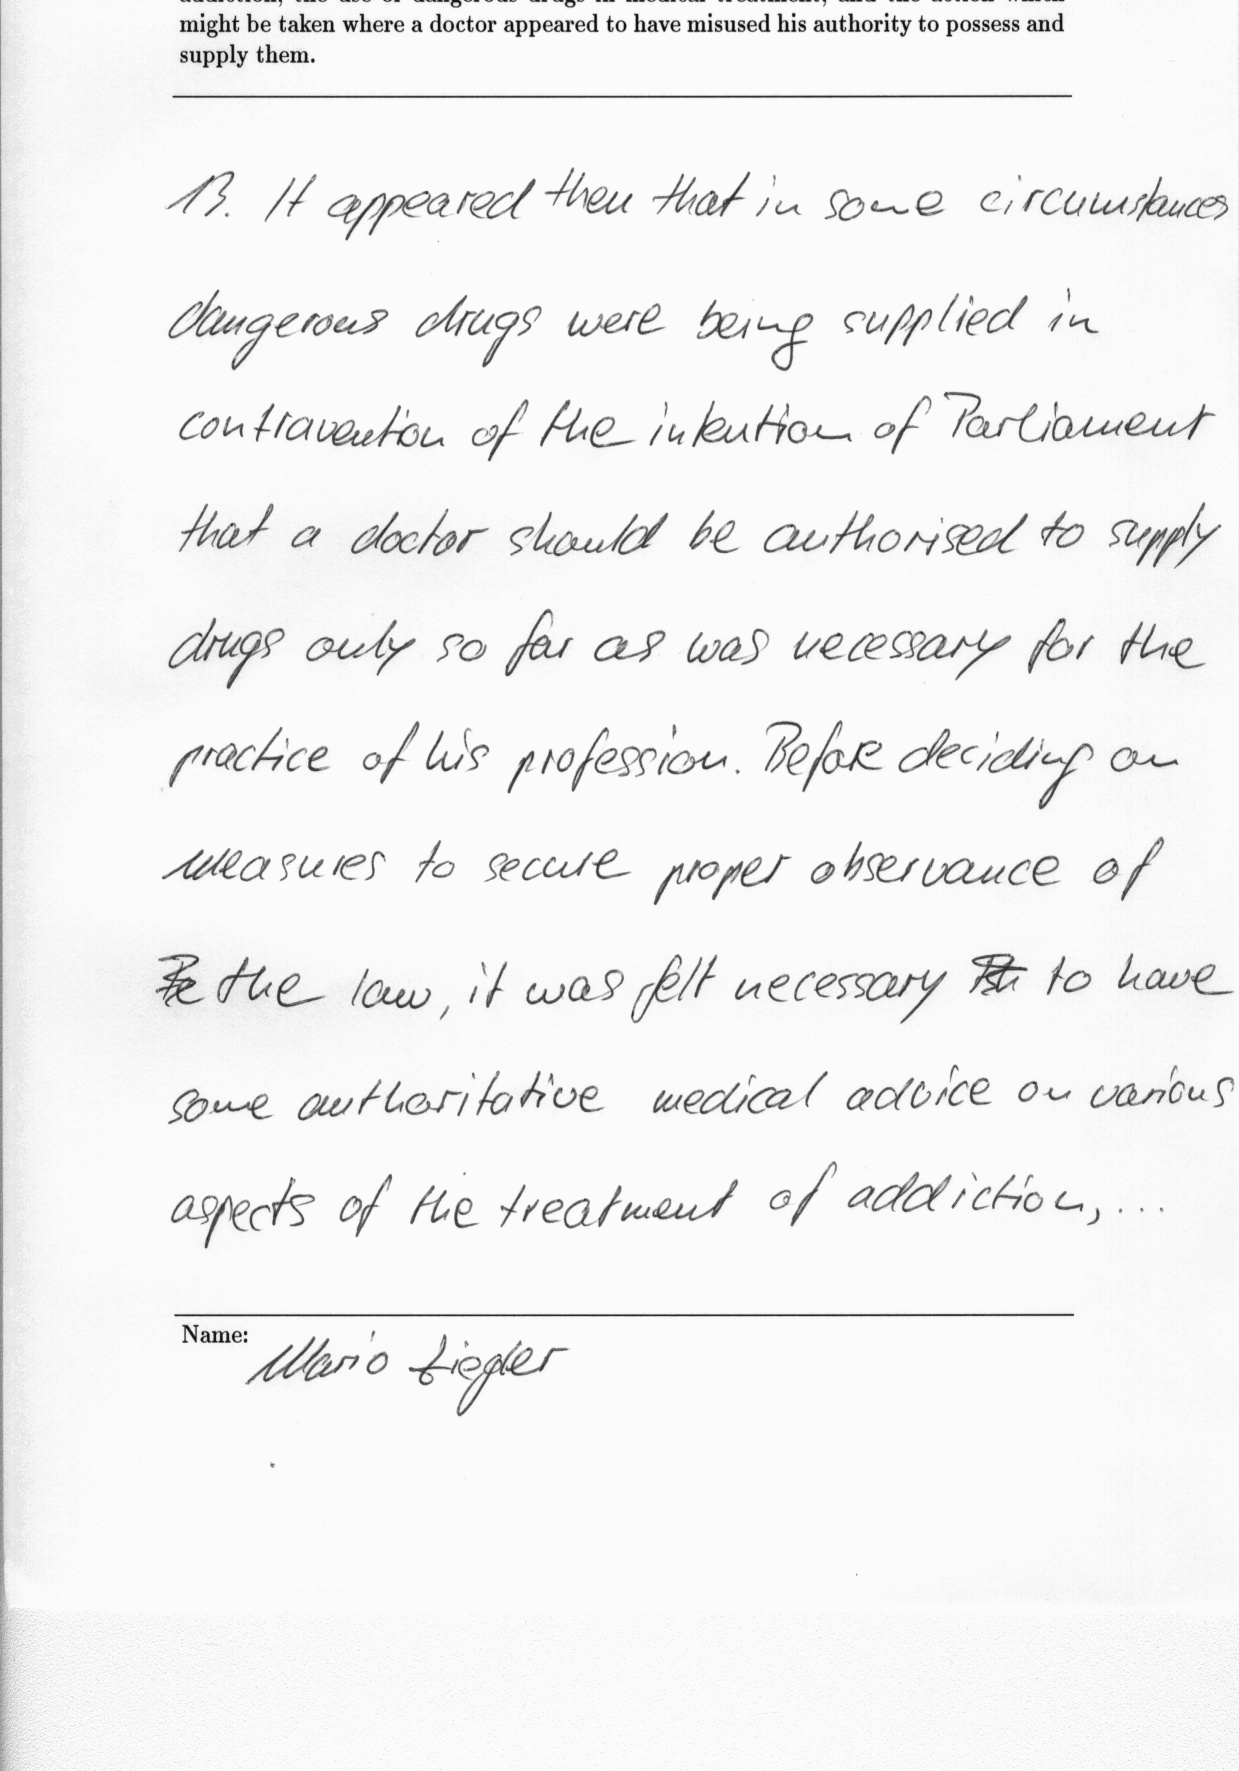 addiction, the use of dangerous drugs in medical treatment, and the action which
might be taken where a doctor appeared to have misused his authority to possess and
supply them.
13. It appeared then that in some circumstances
dangerous drugs were being supplied in
contravention of the intention of Parliament
that a doctor should be authorised to supply
drugs only so far as was necessary for the
practice of his profession. Before deciding on
measures to secure proper observance of
the law, it was felt necessary to have
some authoritative medical advice on various
aspects of the treatment of addiction, ...
Name: Mario Ziegler